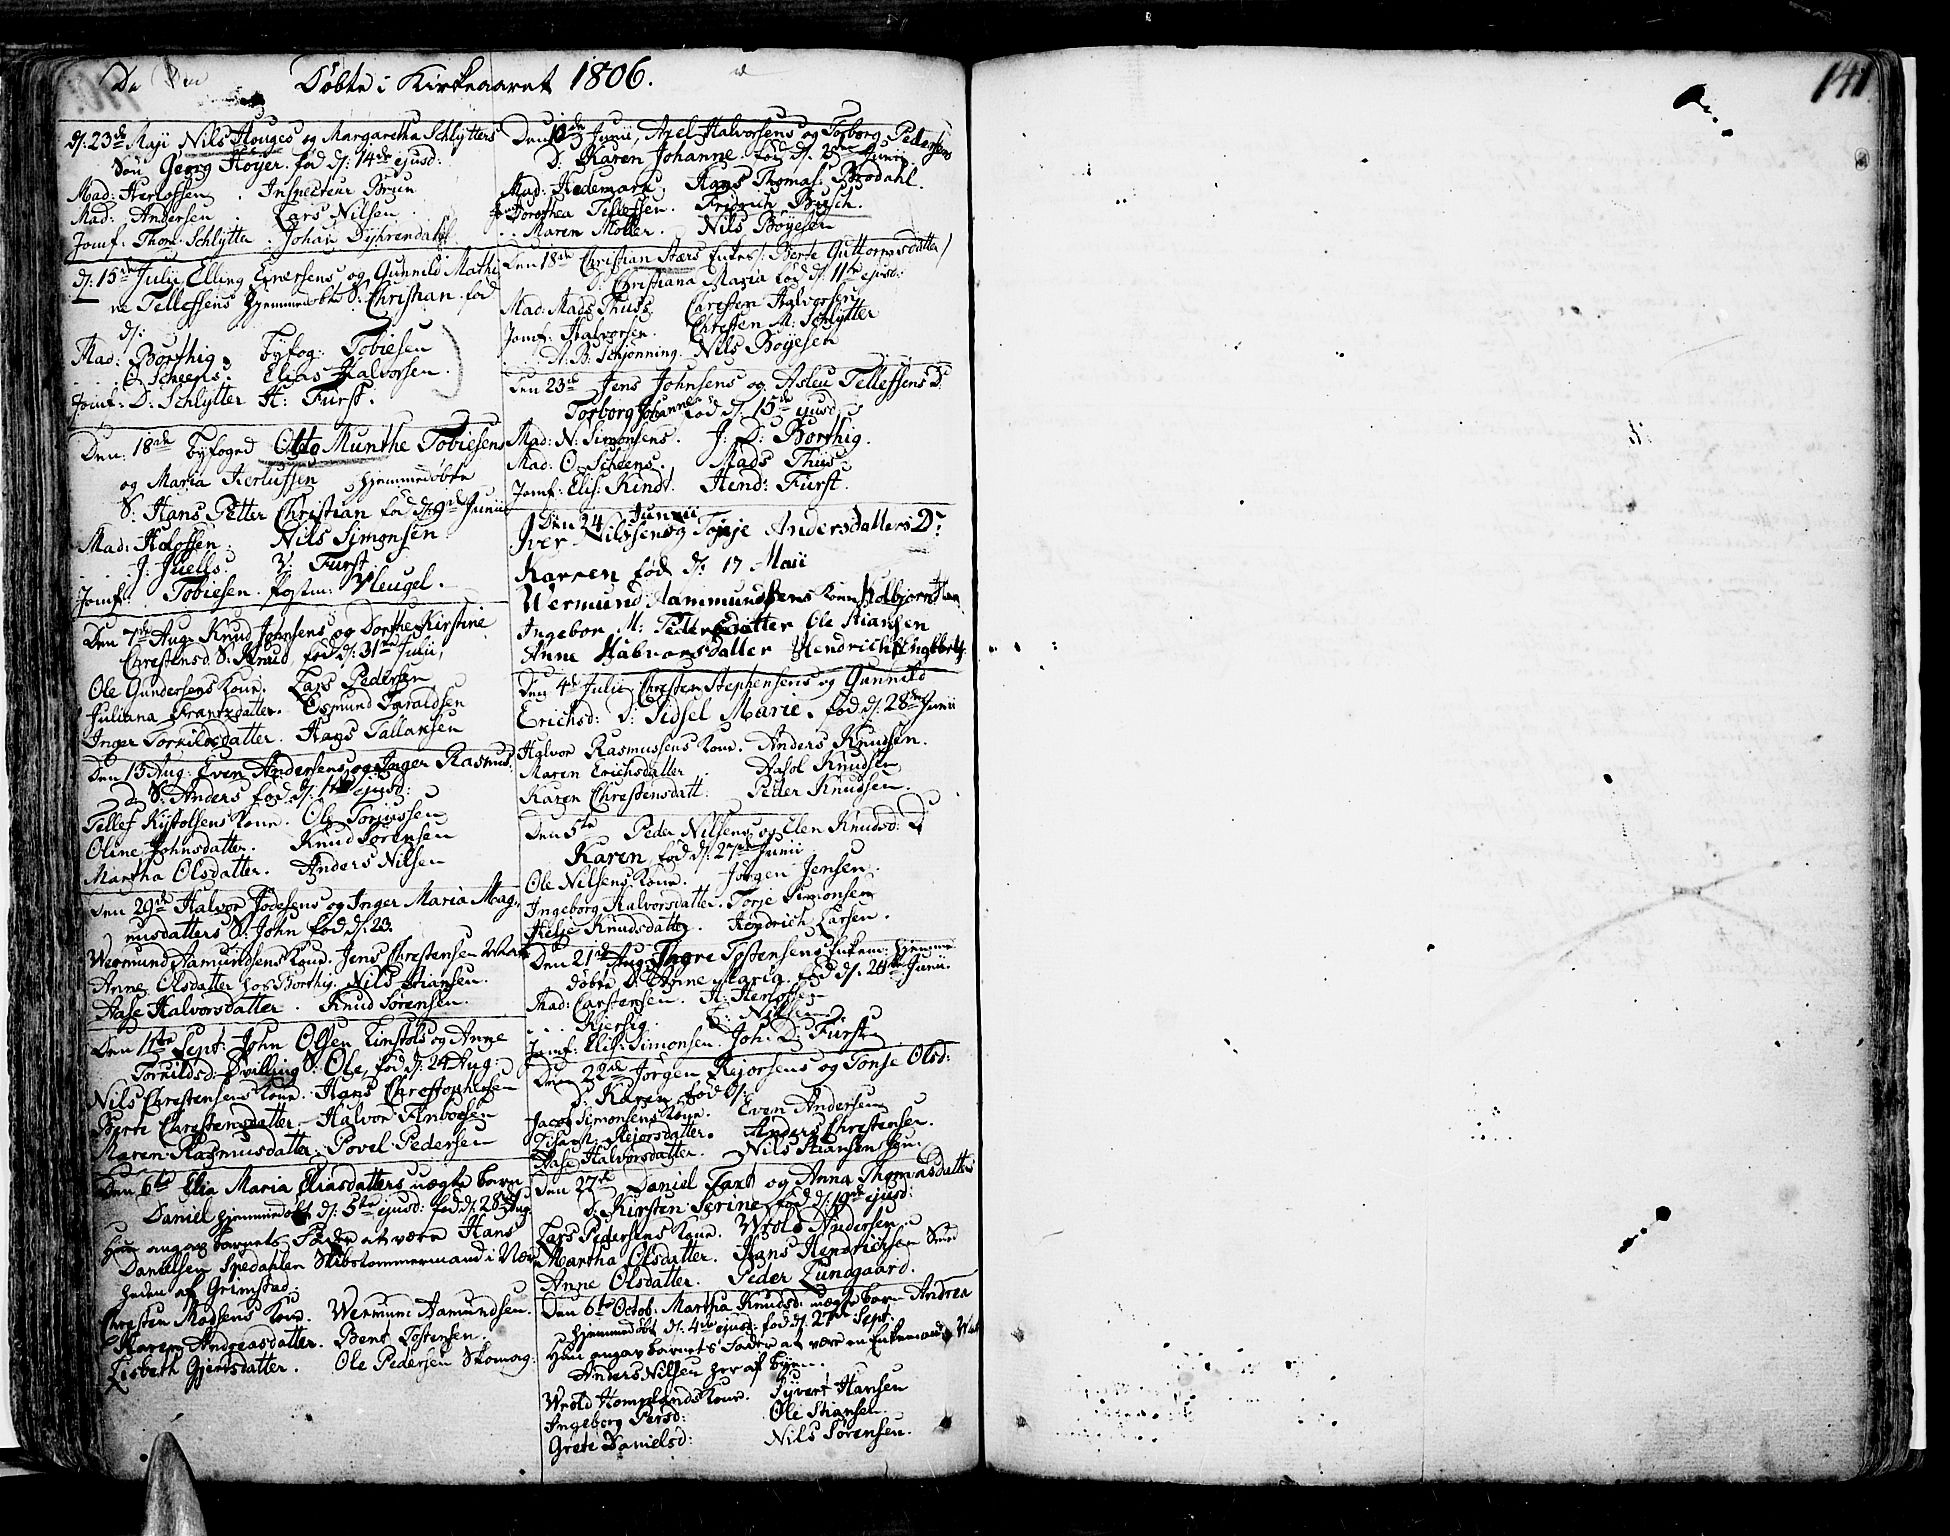 Døbte i Kirkeaaret 1806.
141
d: 23de Maji Nils Houges og Margaretha Schlytters
Søn Georg Høyer. fød d: 14de ejusd:
Mad: Herlofsen. Inspecteur Brun
Mad: Andersen. Lars Nilsen
Jomf: Thom: Schlytter. Johan Dyhrendahl
d: 15de Julii Elling Everssens og Gunnild Mathi
ne Tellefsens hjemmedøbte S: Christian. fød
d:
Mad: Borthig. byfog: Tobiesen
O Scheens. Elias Halvorsen.
Jomf: D: Schlytter H: Furst.
Den: 18de byfoged Otto Munthe Tobiesens
og Maria Herlufssen hjemmedøbte
S: Hans Petter Christian fød d: 9de Junii
Mad: Holofsen. Nils Simonsen
J: Juells. V: Furst
Jomf: Tobiesen. postm: Vleugel.
Den 7de Aug: Knud Johnsens og Dorthe Kirstine
Christensd. S: Knud, fød d: 31te Julii,
Ole Gundersens Kone. Lars Pedersen
Juliana Frantzdatter. Esmund Taraldsen
Inger Torkildsdatter. Hans Tallaksen
Den 13 Aug: Even Andersens og Inger Rasmus
D S: Anders fød d: 1te ejusd:
Tellef Kistolsens Kone. Ole Torjussen
Oline Johnsdatter. Knud Sørensen
Martha Olsdatter. Anders Nilsen
Den 29de Halvor Jodesens og Inger Maria Mag
nusdatters S: John fød d: 23.
Wermund Aamundsens Kone. Jens Christensen
Anne Olsdatter hos Borthig. Nils Stiansen.
Aase Halvorsdatter. Knud Sørensen.
Den 4te Sept: John Olsen Finstols og Anne
Torkildsd: Tvilling S: Ole, fød d: 24 Aug:
Nils Christensens Kone. Hans Christophersen
Berte Christensdatter. Halvor Finboesen
Maren Rasmusdatter. Povel Pedersen
Den 6te Elia Maria Eliasdatters uægte barn
Daniel hjemmedøbt d: 5te ejusd: fød d: 28de Aug
Hun angav barnets Fader at være Hans
Danielsen Spedahlen Skibstømmermand i Nær
heden af Grimstad.
Christen Madsens Kone. Wermun Aamundsen.
Karen Andreasdatter. Bent Tostensen.
Lisbeth Gjertsdatter. Ole Pedersen Skomag:
Den 12de Junii, Axel Halvorsens og Torborg Pedersens
D: Karen Johanne. fød d: 2den Junii.
Mad: Hedemark. Hans Thomas: Brodahl.
Dorothea Tellefsen. Fridrich Busch.
Maren Møller. Nils Bøyesen
Den 18de Christian Aars Enkes /: Berte Guttormsdatter /
D: Christiana Maria fød d: 11te ejusd:
Mad: Mads Thuss. Christen Halvorsen
Jomf: Halvorsen. Christen M: Schlytter
A: B: Schjonning. Nils Bøyesen
Den 23de Jens Johnsens og Aslau Tellefsens D:
Torborg Johanne fød d: 15de ejusd
Mad: N: Simonsens. J: D: Borthig.
Mad: O: Scheens. Mads Thiis
Jomf: Elis: Kindt. Hend: Furst.
Den 24 Junii
Iver Nilssens og Tonje Andersdatters D:
Karen fød d: 17 Maii
Wermund Aammundsens Kone
Ingebor M: Pedersdatter Ole Stiansen
Anne Halvorsdatter Hendrich
Den 4de Julii Christen Stephensens og Gunnild
Erichsd: D: Sidsel Marie. fød d: 28de Junii
Halvor Rasmussens Kone. Anders Knudsen.
Maren Erichsdatter Aasol Knudsen
Karen Christensdatt: Peder Knudsen.
Den 5te Peder Nilsens og Elen Knudsd: D
Karen, fød d: 27de Junii
Ole Nilsens Kone. Jørgen Jensen
Ingeborg Halvorsdatter. Torje Simonsen
Helje Knudsdatter. Hendrich Larsen.
Den 21de Aug: Thore Tostensens Enkem: hjemme
døbte D: Anne Maria. fød d: 24de Junii
Mad: Carstensen. H: Herlofsen
Kjersig. E: Nilsen
Jomf: Elis: Simonsen. Joh: D: Fürst
Den 22de Jørgen Rejorsens og Tonje Olsd:
D: Karen fød d:
Jacob Simonsens Kone. Even Andersen
Lisabth: Rejorsdatter. Anders Christensen.
Aase Halvorsdatter. Nils Stiansen
Den 27de Daniel Faxt og Anna Thomasdatters
D: Kirsten Serine fød d: 19de ejusd:
Lars Pedersens Kone. Wrold Andersen
Martha Olsdatter. Hans Hendrichsen Smed
Anne Olsdatter. Peder Lundgaard.
Den 6te Octob: Martha Knudsd: uægte barn Andrea
hjemmedøbt d: 4de ejusd: fød d: 27de Sept.
Hun angav barnets Fader at være en Enkemand
Anders Nilsen her af byen.
Wrold Homelands Kone. Syvert Hansen
Ingeborg Persd: Ole Stiansen.
Grete Danielsd: Nils Sørensen.